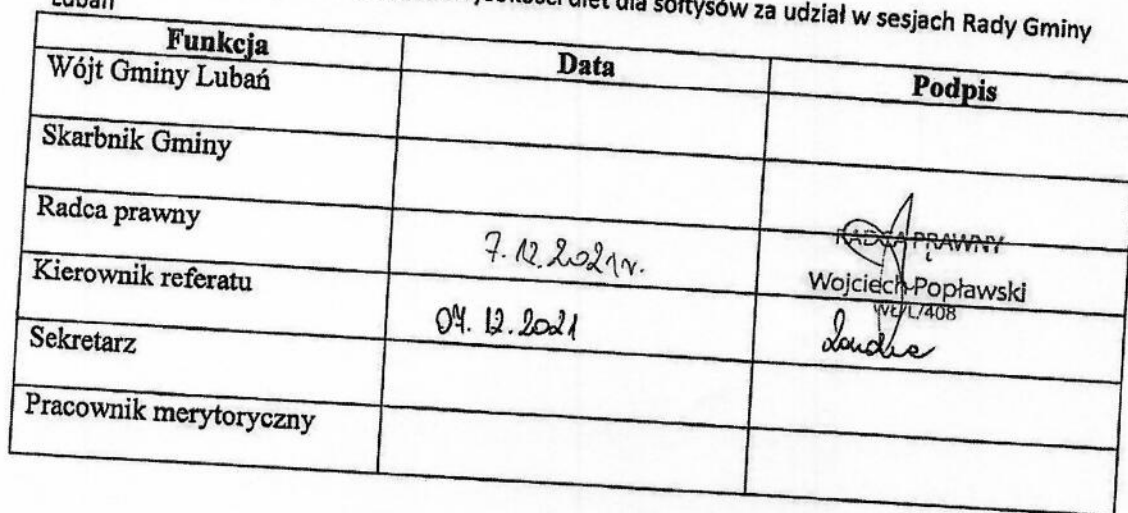 wysokości diet dla sołtysów za udział w sesjach Rady Gminy
Lubań
Funkcja Data Podpis
Wójt Gminy Lubań
Skarbnik Gminy
Radca prawny 7.12.2021r. RADCA PRAWNY
Wojciech Popławski
WŁ/L/408
Kierownik referatu 07.12.2021
Sekretarz
Pracownik merytoryczny